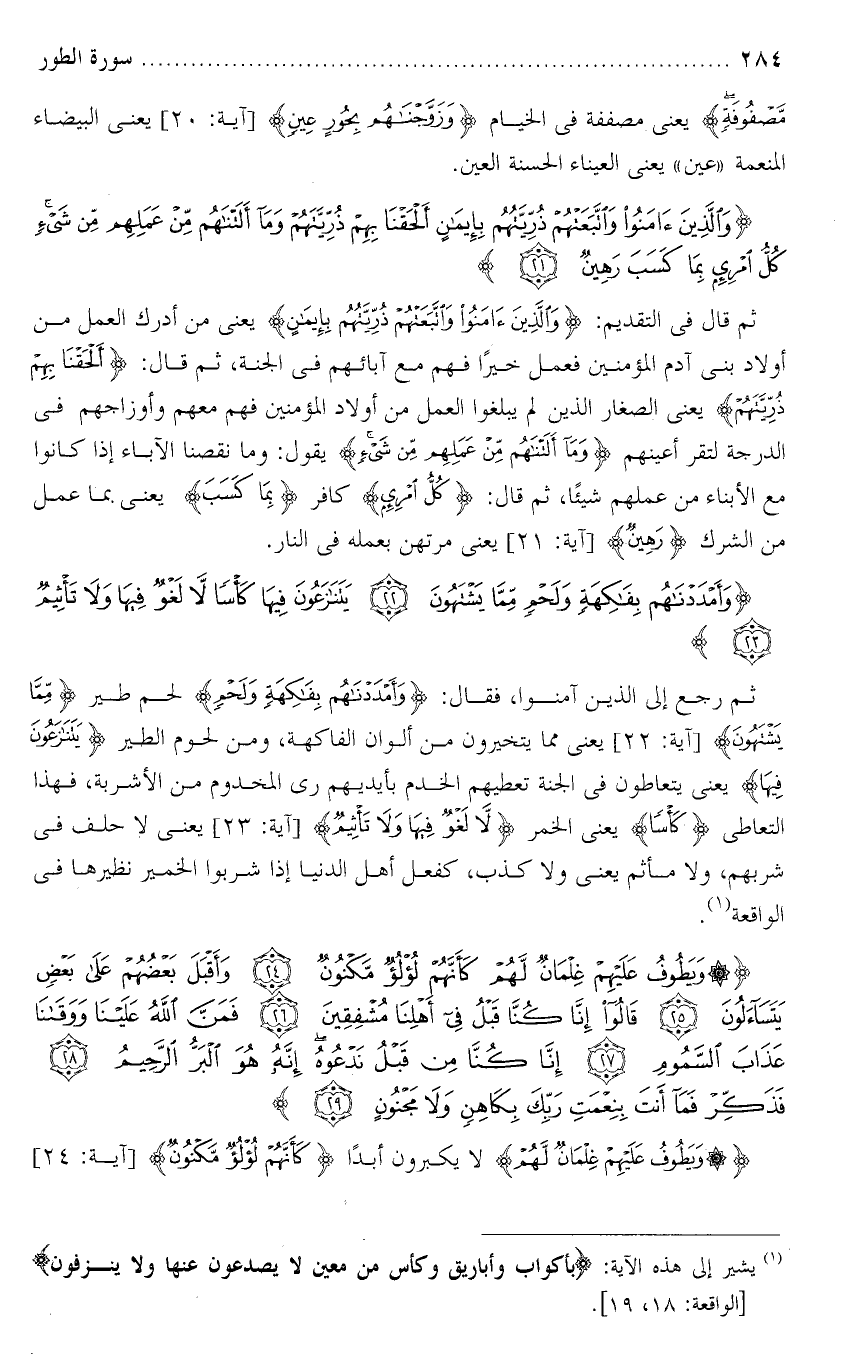 ٢٨٤ ........................................................................ سورة الطور
مَّصْفُوفَةٍۖ﴾ يعنى مصففة فى الخيـام ﴿وَزَوَّجْنَٰهُم بِحُورٍ عِينٍ﴾ [آية: ٢٠] يعنـى البيضـاء
المنعمة «عين» يعنى العيناء الحسنة العين.
﴿وَٱلَّذِينَ ءَامَنُوا۟ وَٱتَّبَعَتْهُمْ ذُرِّيَّتُهُم بِإِيمَٰنٍ أَلْحَقْنَا بِهِمْ ذُرِّيَّتَهُمْ وَمَآ أَلَتْنَٰهُم مِّنْ عَمَلِهِم مِّن شَىْءٍۚ
كُلُّ ٱمْرِئٍۭ بِمَا كَسَبَ رَهِينٌ ٢١ ﴾
ثم قال فى التقديم: ﴿وَٱلَّذِينَ ءَامَنُوا۟ وَٱتَّبَعَتْهُمْ ذُرِّيَّتُهُم بِإِيمَٰنٍ﴾ يعنى من أدرك العمل مـن
أولاد بنـى آدم المؤمنـين فعمـل خـيرًا فـهم مـع آبائـهم فـى الجنـة، ثـم قـال: ﴿أَلْحَقْنَا بِهِمْ
ذُرِّيَّتَهُمْ﴾ يعنى الصغار الذين لم يبلغوا العمل من أولاد المؤمنين فهم معهم وأوزاجهم فـى
الدرجة لتقر أعينهم ﴿وَمَآ أَلَتْنَٰهُم مِّنْ عَمَلِهِم مِّن شَىْءٍۚ﴾ يقول: وما نقصنا الآبـاء إذا كـانوا
مع الأبناء من عملهم شيئًا، ثم قال: ﴿كُلُّ ٱمْرِئٍۭ﴾ كافر ﴿بِمَا كَسَبَ﴾ يعنـى بمـا عمـل
من الشرك ﴿رَهِينٌ﴾ [آية: ٢١] يعنى مرتهن بعمله فى النار.
﴿وَأَمْدَدْنَٰهُم بِفَٰكِهَةٍ وَلَحْمٍ مِّمَّا يَشْتَهُونَ ٢٢ يَتَنَٰزَعُونَ فِيهَا كَأْسًا لَّا لَغْوٌ فِيهَا وَلَا تَأْثِيمٌ
٢٣ ﴾
ثـم رجـع إلى الذيـن آمنـــوا، فقـال: ﴿وَأَمْدَدْنَٰهُم بِفَٰكِهَةٍ وَلَحْمٍ﴾ لحـم طـير ﴿مِّمَّا
يَشْتَهُونَ﴾ [آية: ٢٢] يعنى مما يتخيرون مـن ألـوان الفاكهـة، ومـن لحـوم الطـير ﴿يَتَنَٰزَعُونَ
فِيهَا﴾ يعنى يتعاطون فى الجنة تعطيهم الخـدم بأيديـهم رى المخـدوم مـن الأشـربة، فـهذا
التعاطى ﴿كَأْسًا﴾ يعنى الخمر ﴿لَّا لَغْوٌ فِيهَا وَلَا تَأْثِيمٌ﴾ [آية: ٢٣] يعنـى لا حلـف فـى
شربهم، ولا مـأثم يعنـى ولا كـذب، كفعـل أهـل الدنيـا إذا شـربوا الخمـير نظيرهـا فـى
الواقعة(١).
﴿۞ وَيَطُوفُ عَلَيْهِمْ غِلْمَانٌ لَّهُمْ كَأَنَّهُمْ لُؤْلُؤٌ مَّكْنُونٌ ٢٤ وَأَقْبَلَ بَعْضُهُمْ عَلَىٰ بَعْضٍ
يَتَسَآءَلُونَ ٢٥ قَالُوٓا۟ إِنَّا كُنَّا قَبْلُ فِىٓ أَهْلِنَا مُشْفِقِينَ ٢٦ فَمَنَّ ٱللَّهُ عَلَيْنَا وَوَقَىٰنَا
عَذَابَ ٱلسَّمُومِ ٢٧ إِنَّا كُنَّا مِن قَبْلُ نَدْعُوهُۖ إِنَّهُۥ هُوَ ٱلْبَرُّ ٱلرَّحِيمُ ٢٨
فَذَكِّرْ فَمَآ أَنتَ بِنِعْمَتِ رَبِّكَ بِكَاهِنٍ وَلَا مَجْنُونٍ ٢٩ ﴾
﴿۞ وَيَطُوفُ عَلَيْهِمْ غِلْمَانٌ لَّهُمْ﴾ لا يكـبرون أبـدًا ﴿كَأَنَّهُمْ لُؤْلُؤٌ مَّكْنُونٌ﴾ [آيـة: ٢٤]
(١) يشير إلى هذه الآية: ﴿بأكواب وأباريق وكأس من معين لا يصدعون عنها ولا ينـــزفون﴾
[الواقعة: ١٨، ١٩].